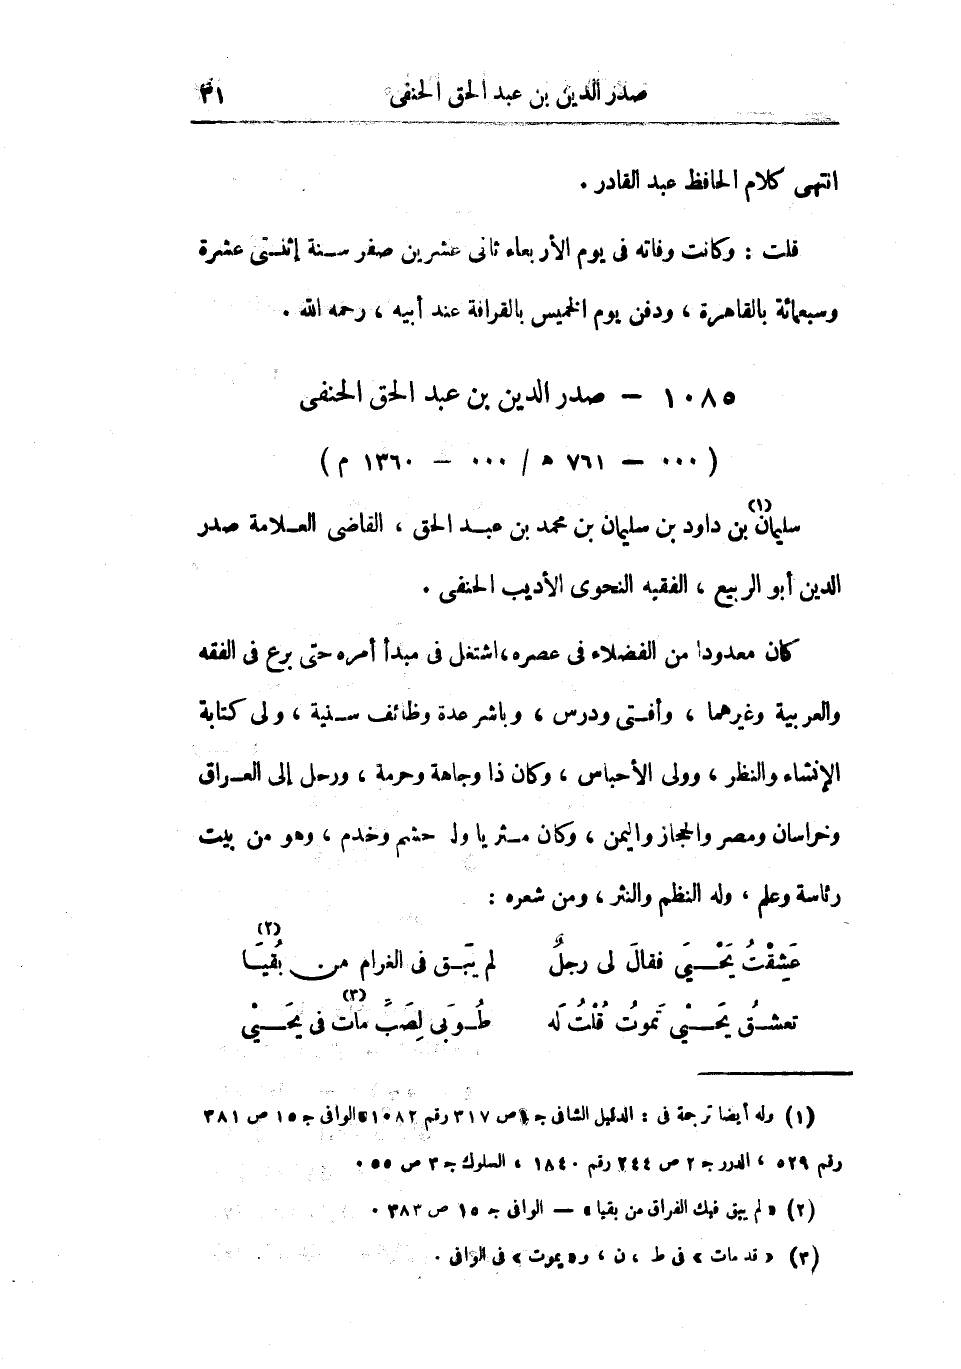 صدر الدين بن عبد الحق الحنفى ٣١
انتهى كلام الحافظ عبد القادر .
قلت : وكانت وفاته فى يوم الأربعاء ثانى عشرين صفر سنة إثنتى عشرة
وسبعمائة بالقاهرة ، ودفن يوم الخميس بالقرافة عند أبيه ، رحمه الله .
١٠٨٥ – صدر الدين بن عبد الحق الحنفى
( ٠٠٠ – ٧٦١ ه / ٠٠٠ – ١٣٦٠ م )
سليمان(١) بن داود بن سليمان بن محمد بن عبد الحق ، القاضى العلامة صدر
الدين أبو الربيع ، الفقيه النحوى الأديب الحنفى .
كان معدودا من الفضلاء فى عصره، اشتغل فى مبدأ أمره حتى برع فى الفقه
والعربية وغيرهما ، وأفتى ودرس ، وباشر عدة وظائف سنية ، ولى كتابة
الإنشاء والنظر ، وولى الأحباس ، وكان ذا وجاهة وحرمة ، ورحل إلى العراق
وخراسان ومصر والحجاز واليمن ، وكان مثريا وله حشم وخدم ، وهو من بيت
رئاسة وعلم ، وله النظم والنثر ، ومن شعره :
عَشِقْتُ يَحْيَى فقالَ لى رجلٌ لم يَبْق فى الغرام من بُقيَا(٢)
تعشقُ يَحَيْى تموتُ قُلْتُ لَه طُوبَى لِصَبَّ مَاتَ(٣) فى يَحَيْى
(١) وله أيضا ترجمة فى : الدليل الشافى ج١ ص ٣١٧ رقم ١٠٨٢ ، الوافى ج ١٥ ص ٣٨١
رقم ٥٢٩ ، الدرر ج ٢ ص ٢٤٤ رقم ١٨٤٠ ، السلوك ج ٣ ص ٥٥ .
(٢) « لم يبق فيك الفراق من بقيا » – الوافى ج ١٥ ص ٣٨٣ .
(٣) « قد مات » فى ط ، ن ، و « يموت » فى الوافى .